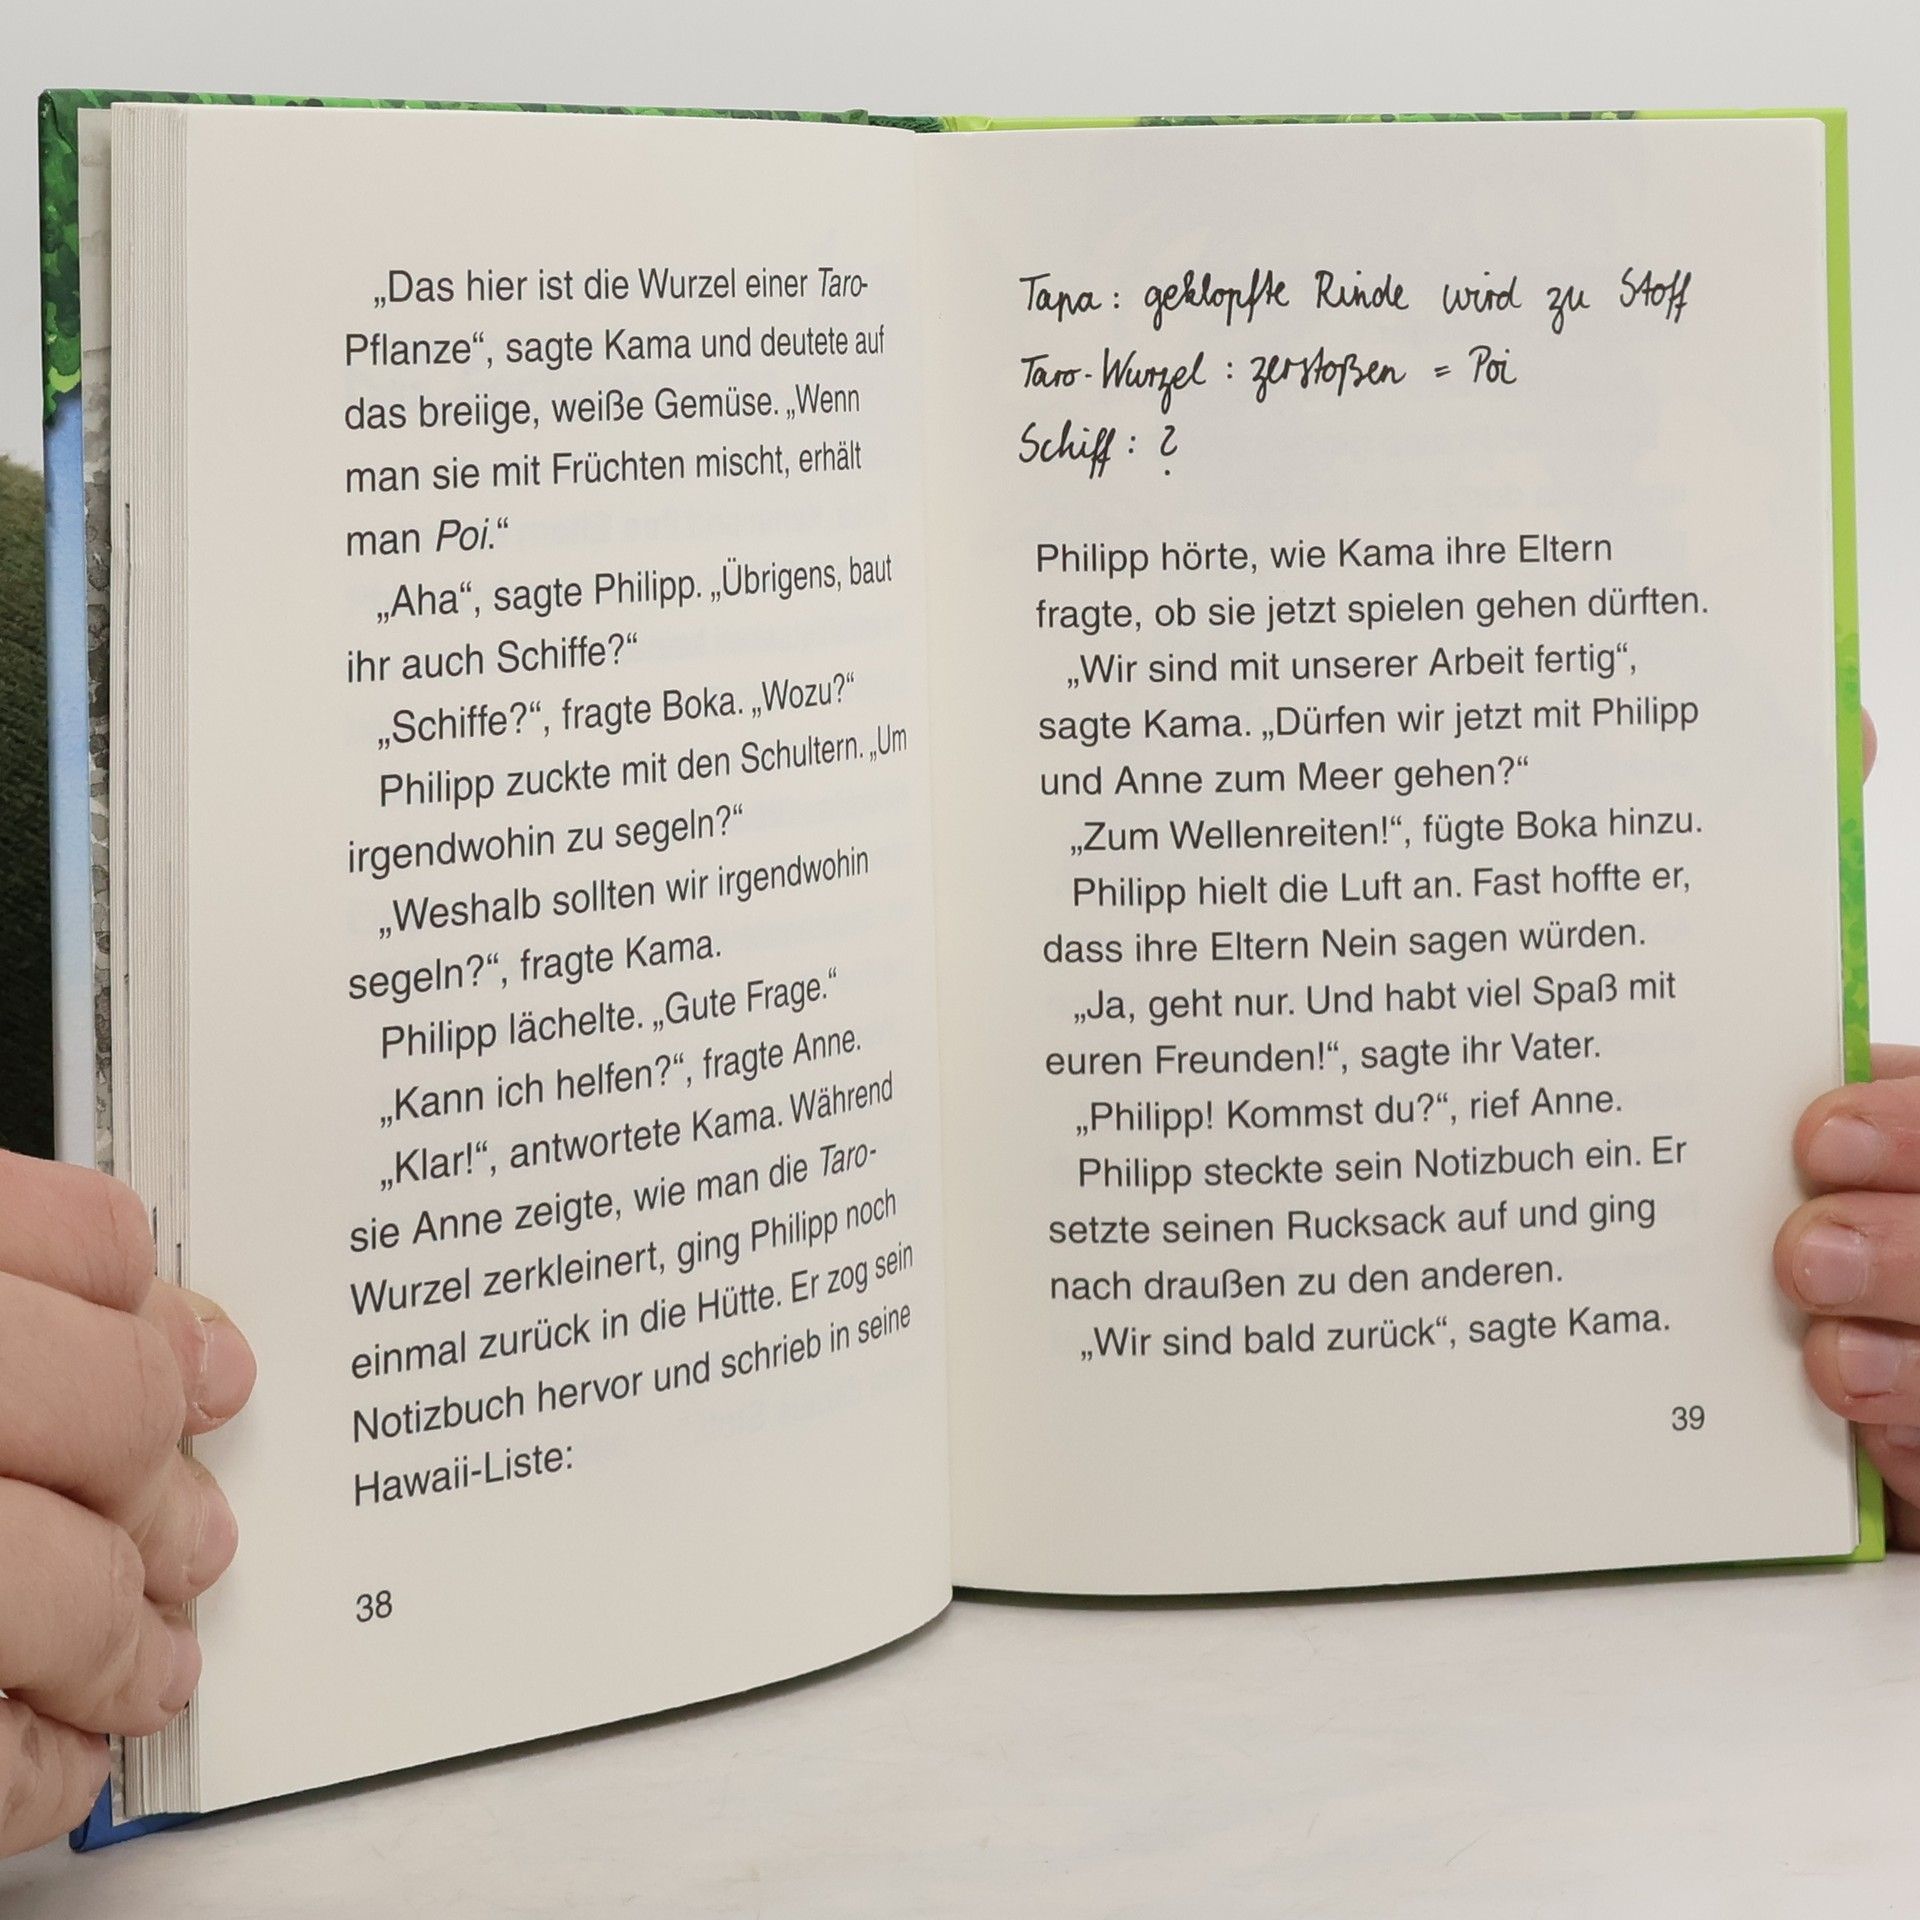 „Das hier ist die Wurzel einer Taro-
Pflanze“, sagte Kama und deutete auf
das breiige, weiße Gemüse. „Wenn
man sie mit Früchten mischt, erhält
man Poi.“
„Aha“, sagte Philipp. „Übrigens, baut
ihr auch Schiffe?“
„Schiffe?“, fragte Boka. „Wozu?“
Philipp zuckte mit den Schultern. „Um
irgendwohin zu segeln?“
„Weshalb sollten wir irgendwohin
segeln?“, fragte Kama.
Philipp lächelte. „Gute Frage.“
„Kann ich helfen?“, fragte Anne.
„Klar!“, antwortete Kama. Während
sie Anne zeigte, wie man die Taro-
Wurzel zerkleinert, ging Philipp noch
einmal zurück in die Hütte. Er zog sein
Notizbuch hervor und schrieb in seine
Hawaii-Liste:
38
Tapa: geklopfte Rinde wird zu Stoff
Taro-Wurzel: zerstoßen = Poi
Schiff: ?
Philipp hörte, wie Kama ihre Eltern
fragte, ob sie jetzt spielen gehen dürften.
„Wir sind mit unserer Arbeit fertig“,
sagte Kama. „Dürfen wir jetzt mit Philipp
und Anne zum Meer gehen?“
„Zum Wellenreiten!“, fügte Boka hinzu.
Philipp hielt die Luft an. Fast hoffte er,
dass ihre Eltern Nein sagen würden.
„Ja, geht nur. Und habt viel Spaß mit
euren Freunden!“, sagte ihr Vater.
„Philipp! Kommst du?“, rief Anne.
Philipp steckte sein Notizbuch ein. Er
setzte seinen Rucksack auf und ging
nach draußen zu den anderen.
„Wir sind bald zurück“, sagte Kama.
39